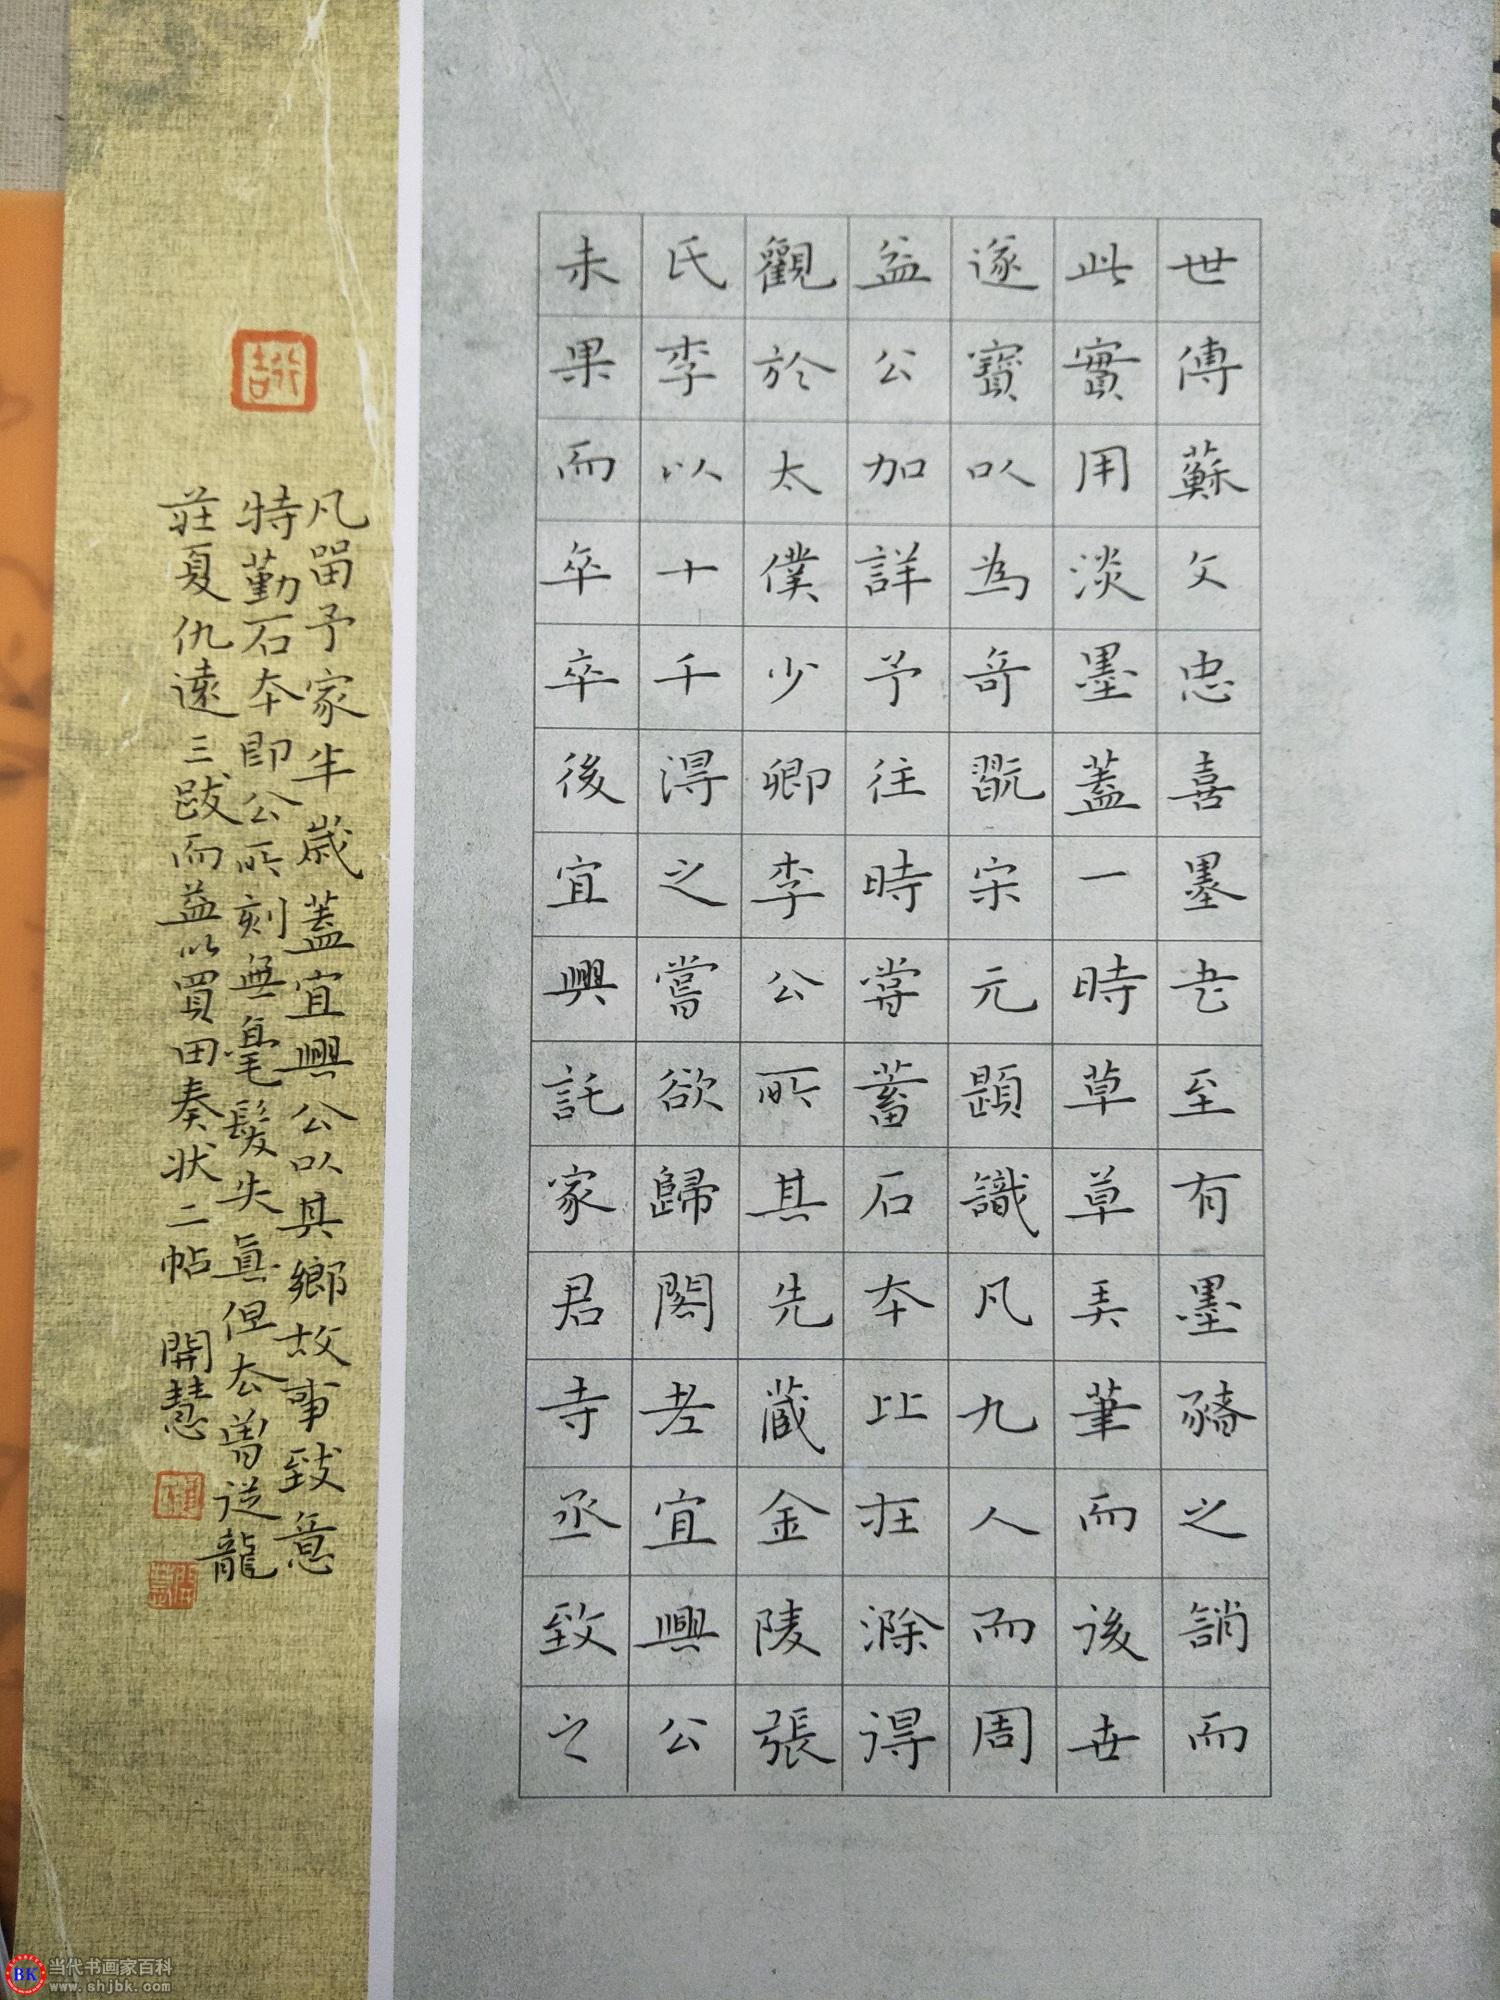 世傳蘇文忠喜墨書至有墨豬之誚而
此實用淡墨蓋一時草草弄筆而後世
遂寶以為奇翫宋元題識凡九人而周
益公加詳予往時嘗蓄石本比在滁得
觀於太僕少卿李公所其先藏金陵張
氏李以十千得之嘗欲歸閣老宜興公
未果而卒卒後宜興託家君寺丞致之
凡留予家半歲蓋宜興公以其鄉故事致意
特勤石本即公所刻無毫髮失真但去曾從龍
莊夏仇遠三跋而益以買田奏狀二帖 開慧
吉
開慧
当代书画家百科
www.shjbk.com
BK